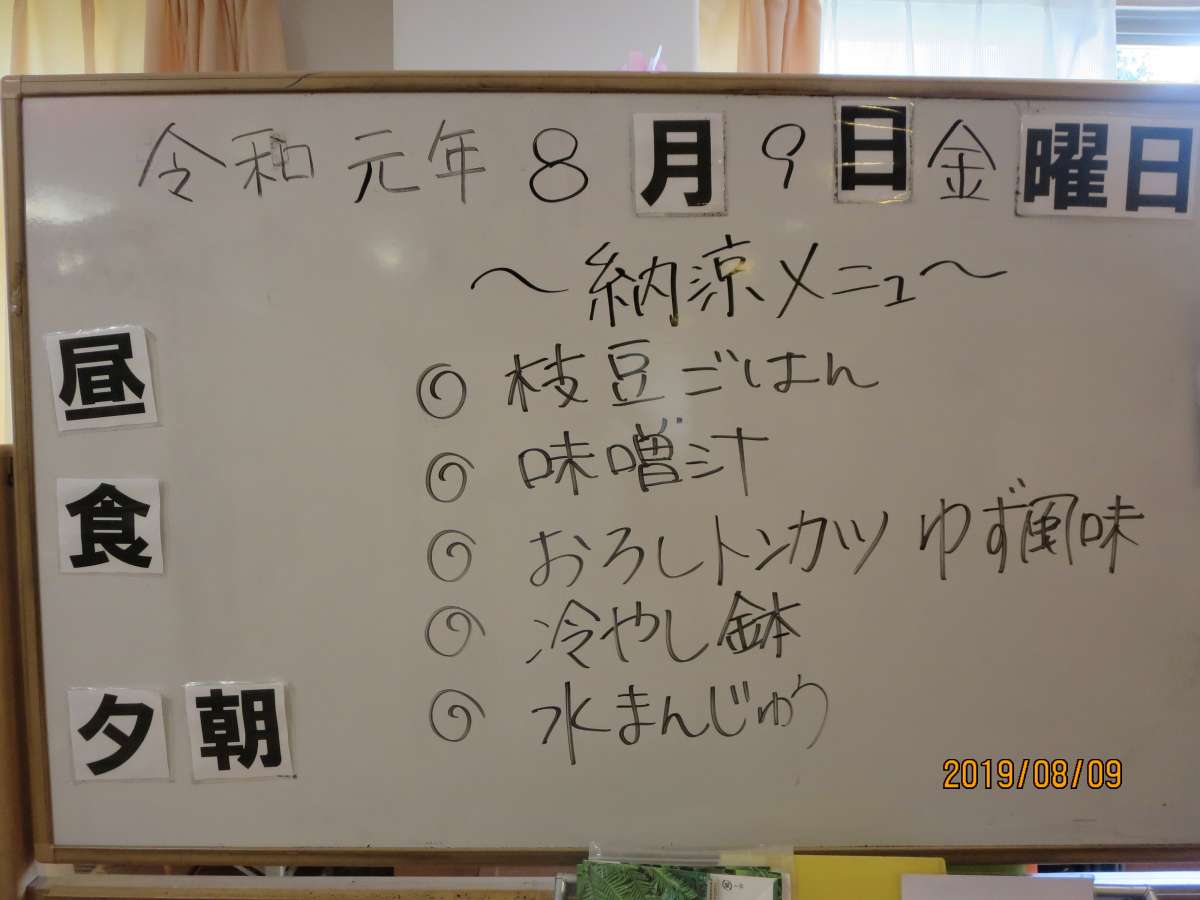 令和元年8月9日金曜日
～納涼メニュー～
昼食
◎ 枝豆ごはん
◎ 味噌汁
◎ おろしトンカツ ゆず風味
◎ 冷やし鉢
◎ 水まんじゅう
夕 朝
2019/08/09